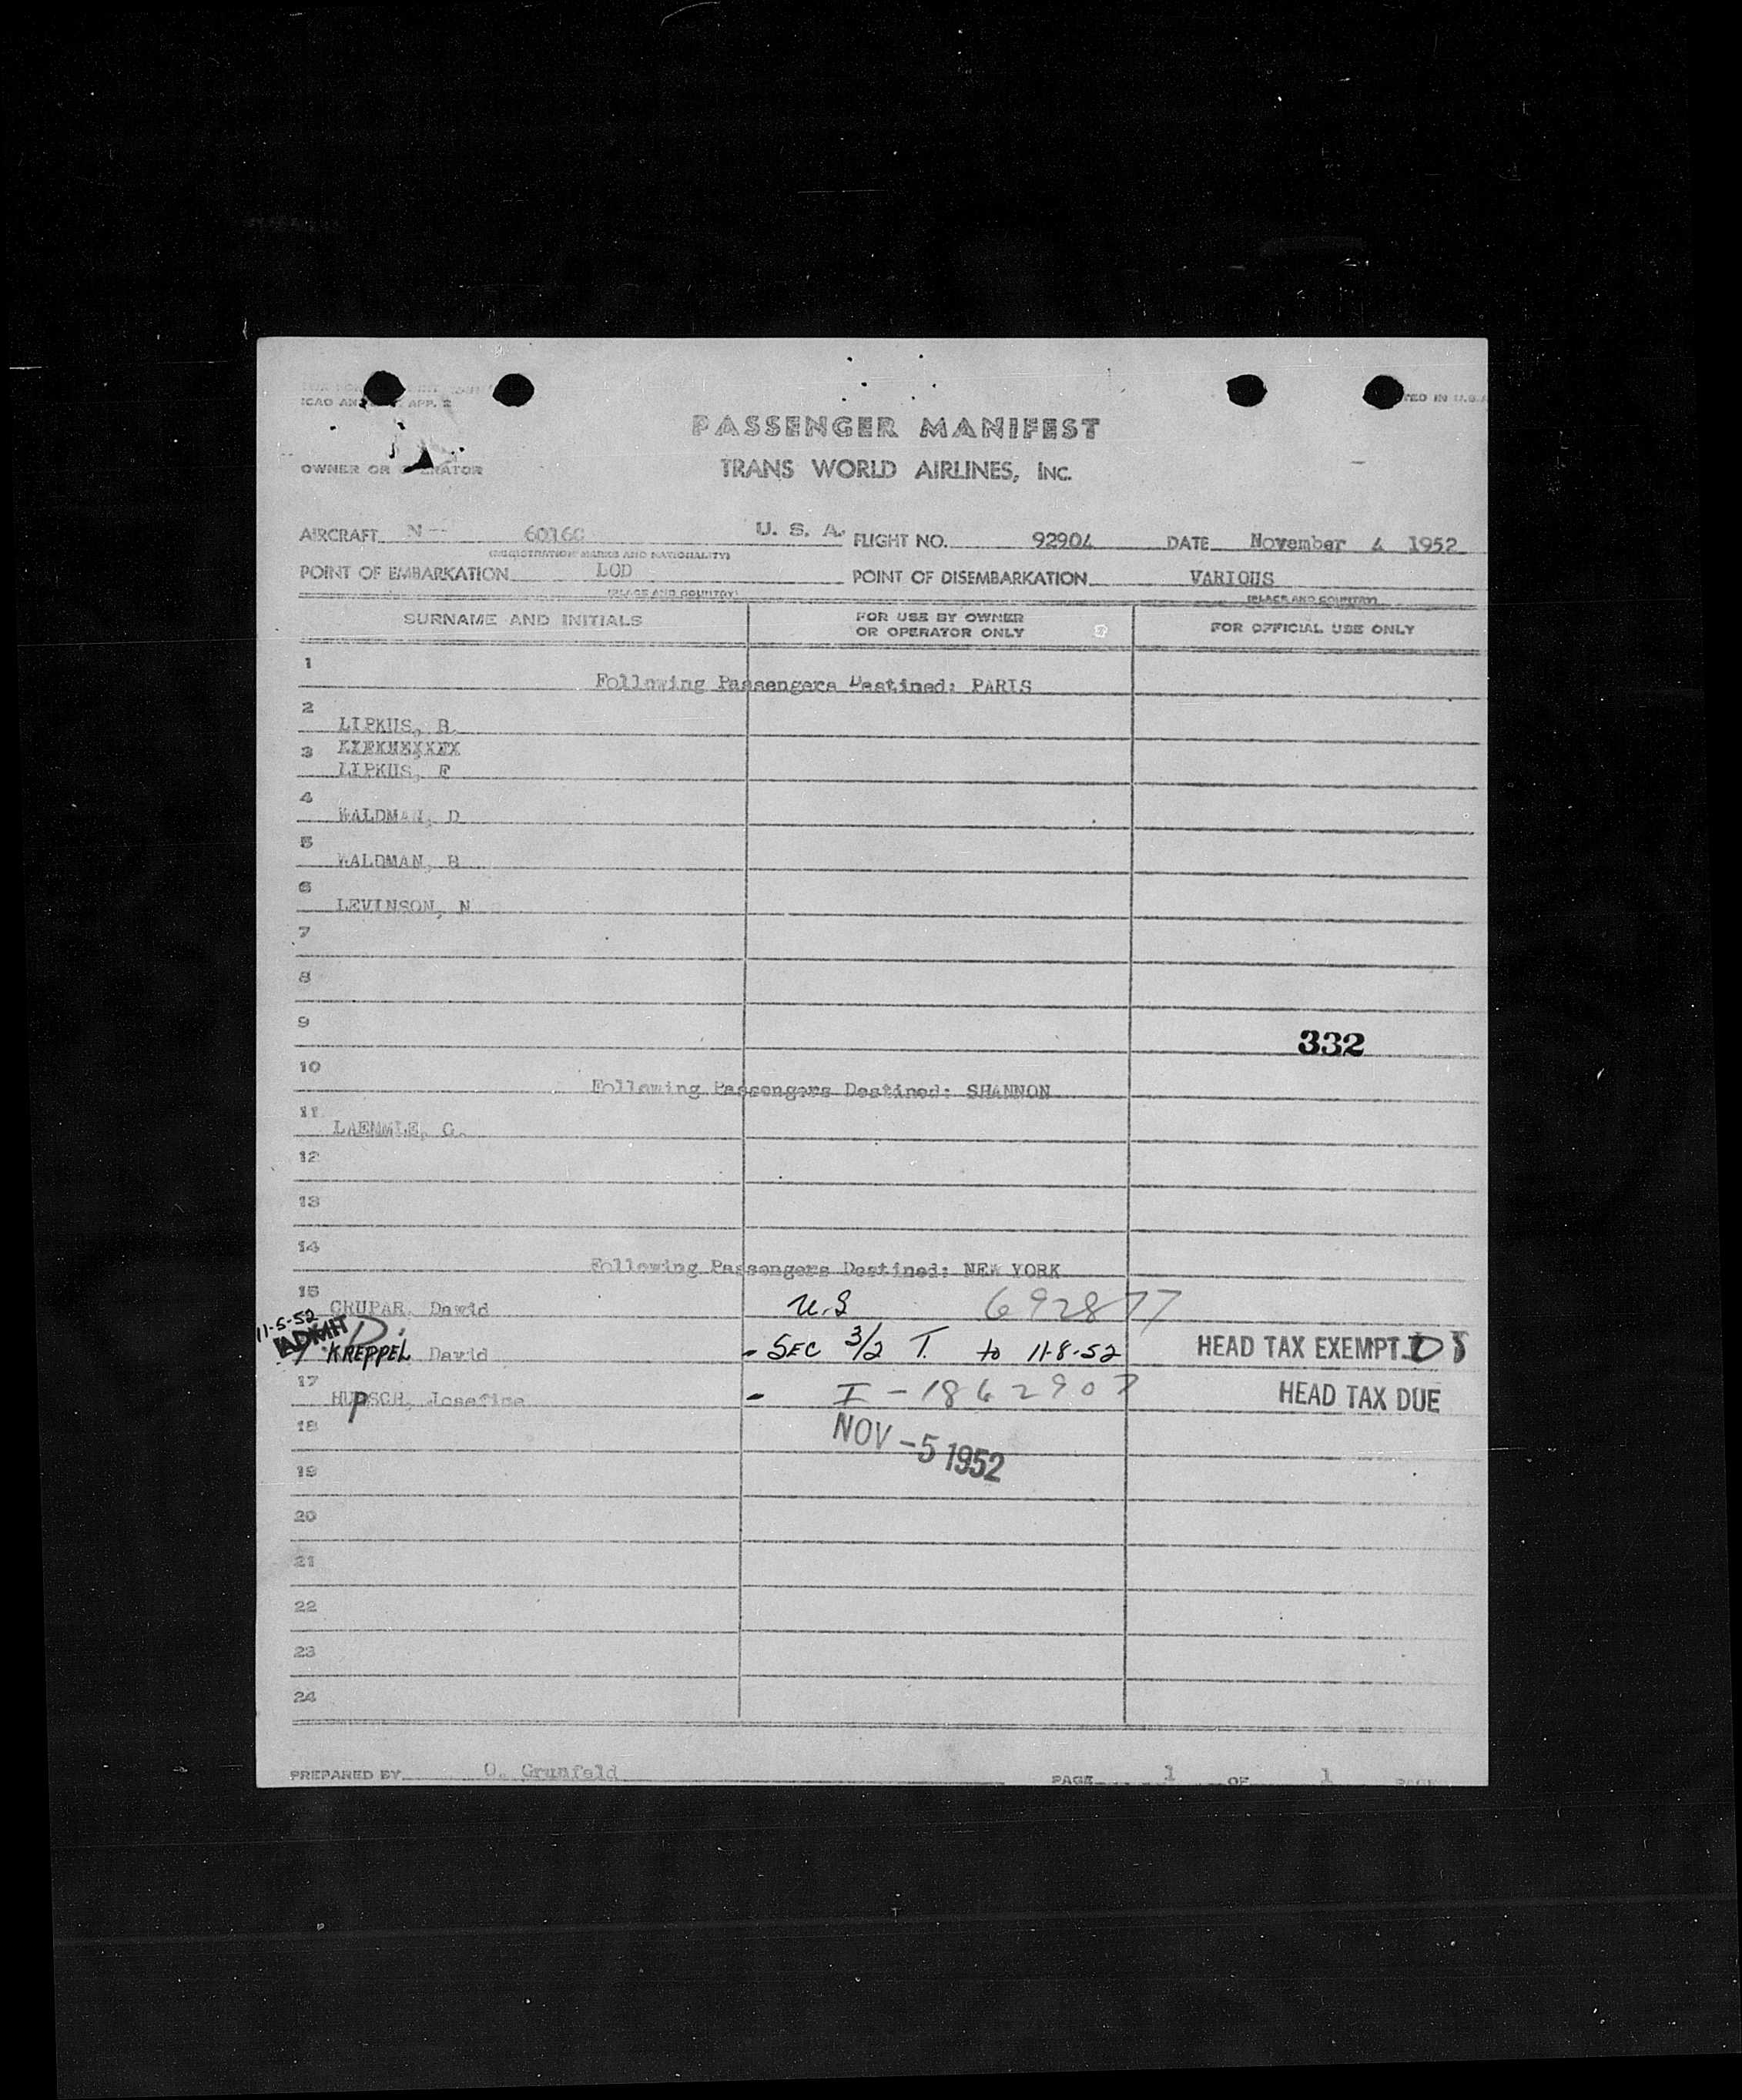 ICAO AN APP. 2
TED IN U.S.A
PASSENGER MANIFEST
OWNER OR OPERATOR
TRANS WORLD AIRLINES, INC.
AIRCRAFT N-- 6016C U. S. A. FLIGHT NO. 92904 DATE November 4 1952
(REGISTRATION MARKS AND NATIONALITY)
POINT OF EMBARKATION LOD POINT OF DISEMBARKATION VARIOUS
(PLACE AND COUNTRY) (PLACE AND COUNTRY)
SURNAME AND INITIALS FOR USE BY OWNER OR OPERATOR ONLY FOR OFFICIAL USE ONLY
1 Following Passengers Destined: PARIS
2 LIPKUS, B.
3
LIPKUS, F
4 WALDMAN, D
5 WALDMAN, B
6 LEVINSON, N
7
8
9 332
10 Following Passengers Destined: SHANNON
11 LAEMMLE, C.
12
13
14 Following Passengers Destined: NEW YORK
15 CRUPAR, David U.S 692877
11-5-52
ADMIT D.
KREPPEL David - SEC 3/2 T. to 11-8-52 HEAD TAX EXEMPT D S
17 P Josefine - I-1862907 HEAD TAX DUE
18 NOV -5 1952
19
20
21
22
23
24
PREPARED BY O. Grunfeld PAGE 1 OF 1